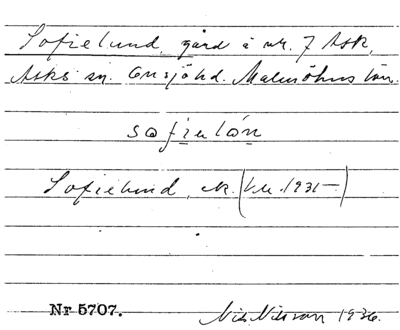 Sofielund, gård å nr. 7 Ask,
Asks sn. Onsjöhd. Malmöhus län.
sofiulón
Sofielund, ek. (1931—)
Nr 5707.
Nils Nilsson 1936.